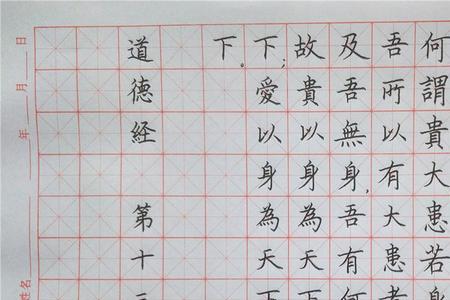 何謂貴大患若身
吾所以有大患者
及吾無身,吾有何
故貴以身為天下
下;愛以身為天下
下。
道德經 第十三
姓名 年 月 日